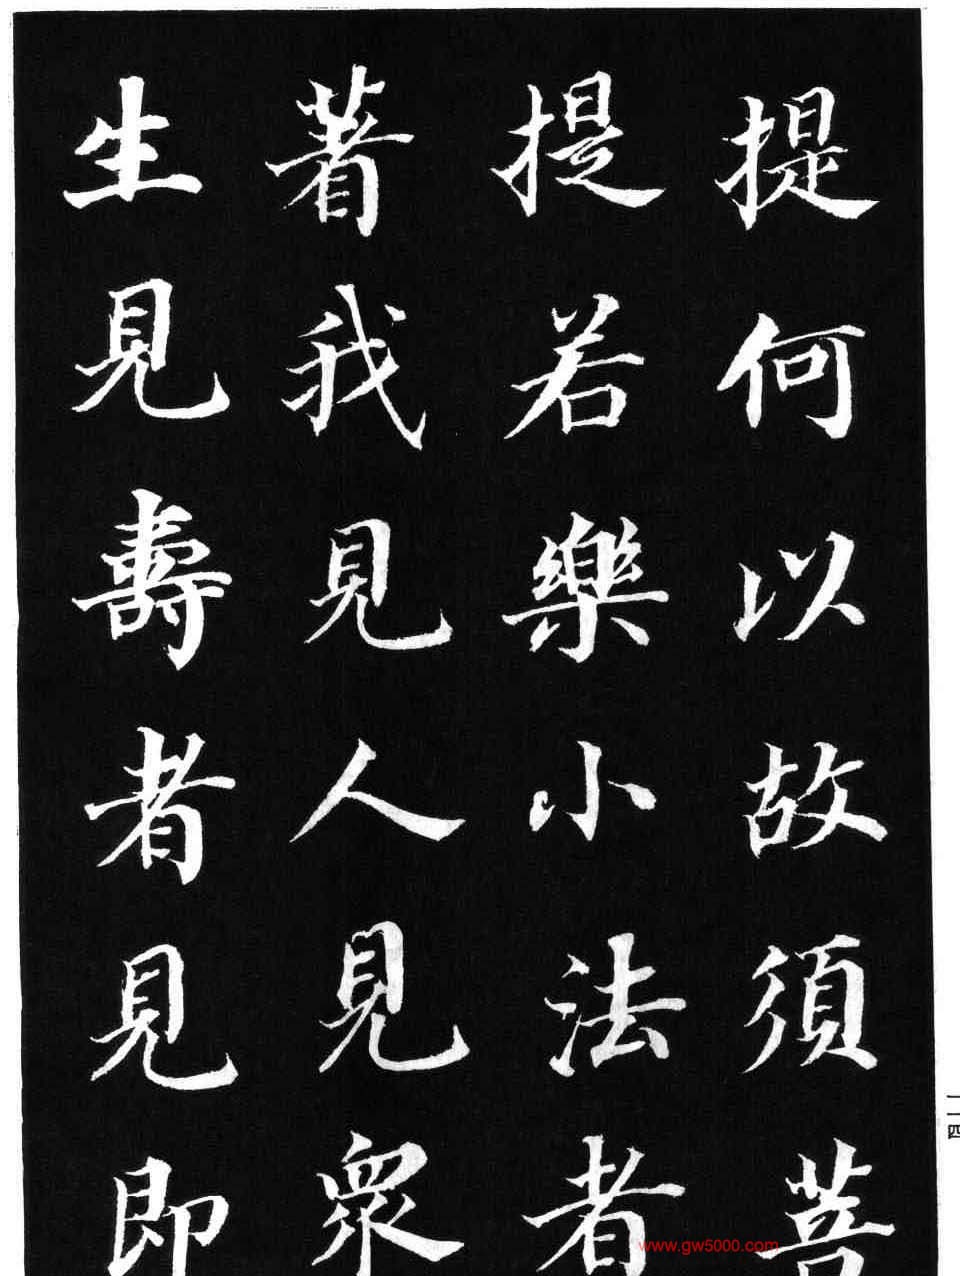 提何以故須菩
提若樂小法者
著我見人見眾
生見壽者見即
一一四
www.gw5000.com